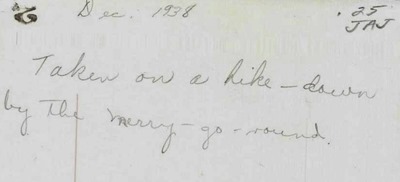 2 Dec. 1938 .25
JAJ
Taken on a hike - down
by the merry-go-round.